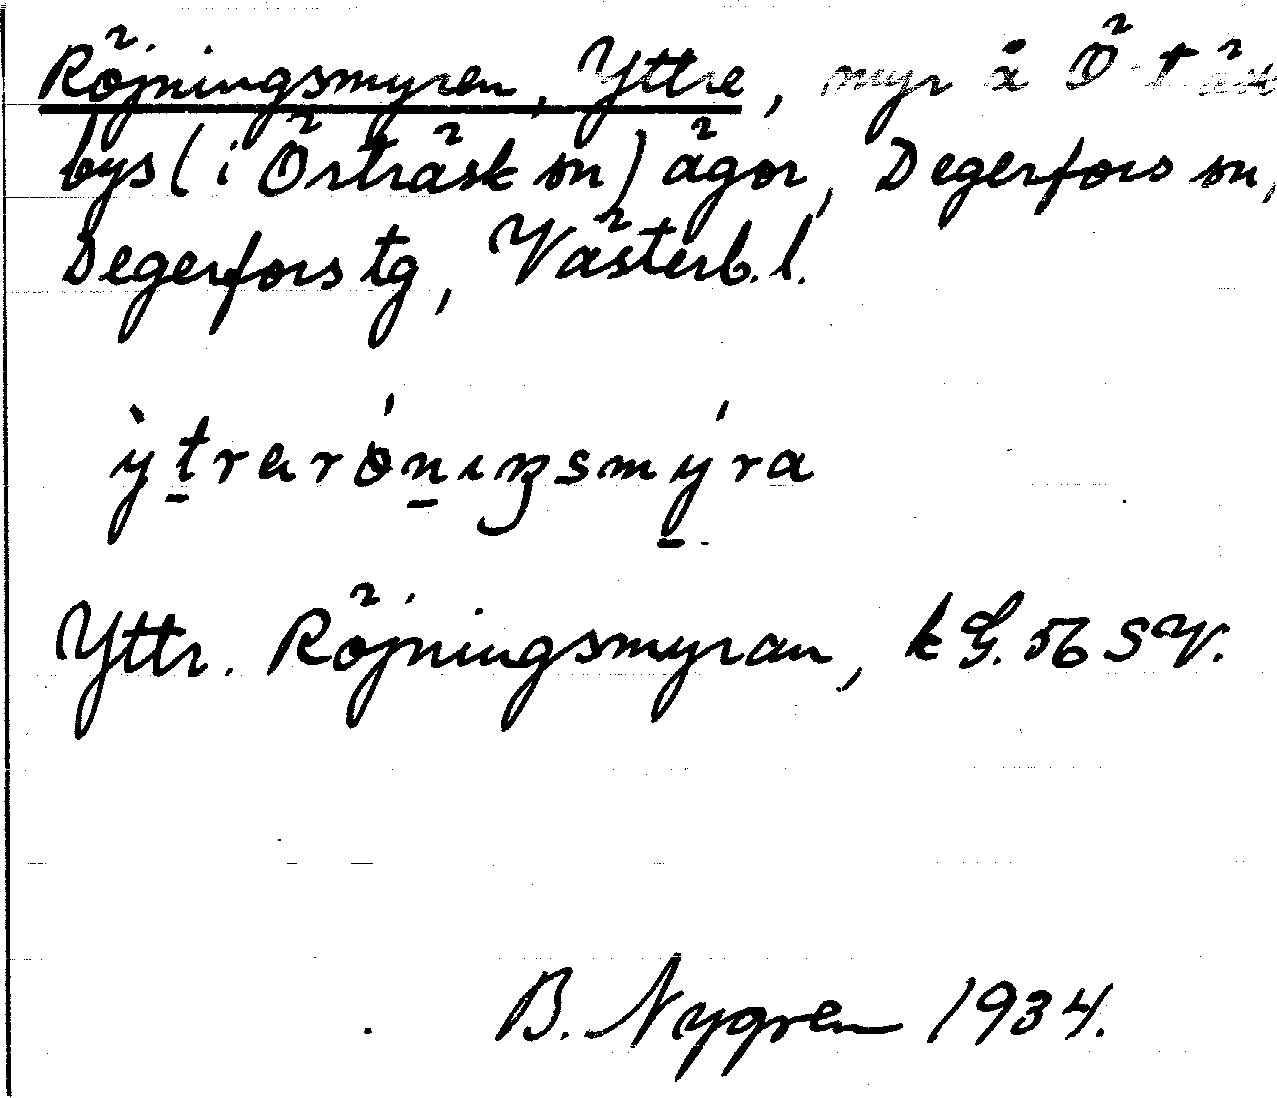 Röjningsmyren, Yttre, myr å
bys (i Örträsk sn) ägor, Degerfors sn,
Degerfors tg, Västerb. l.
ỳtrarónıŋsmýra
Yttr. Röjningsmyran, k G. 56 SV.
B. Nygren 1934.